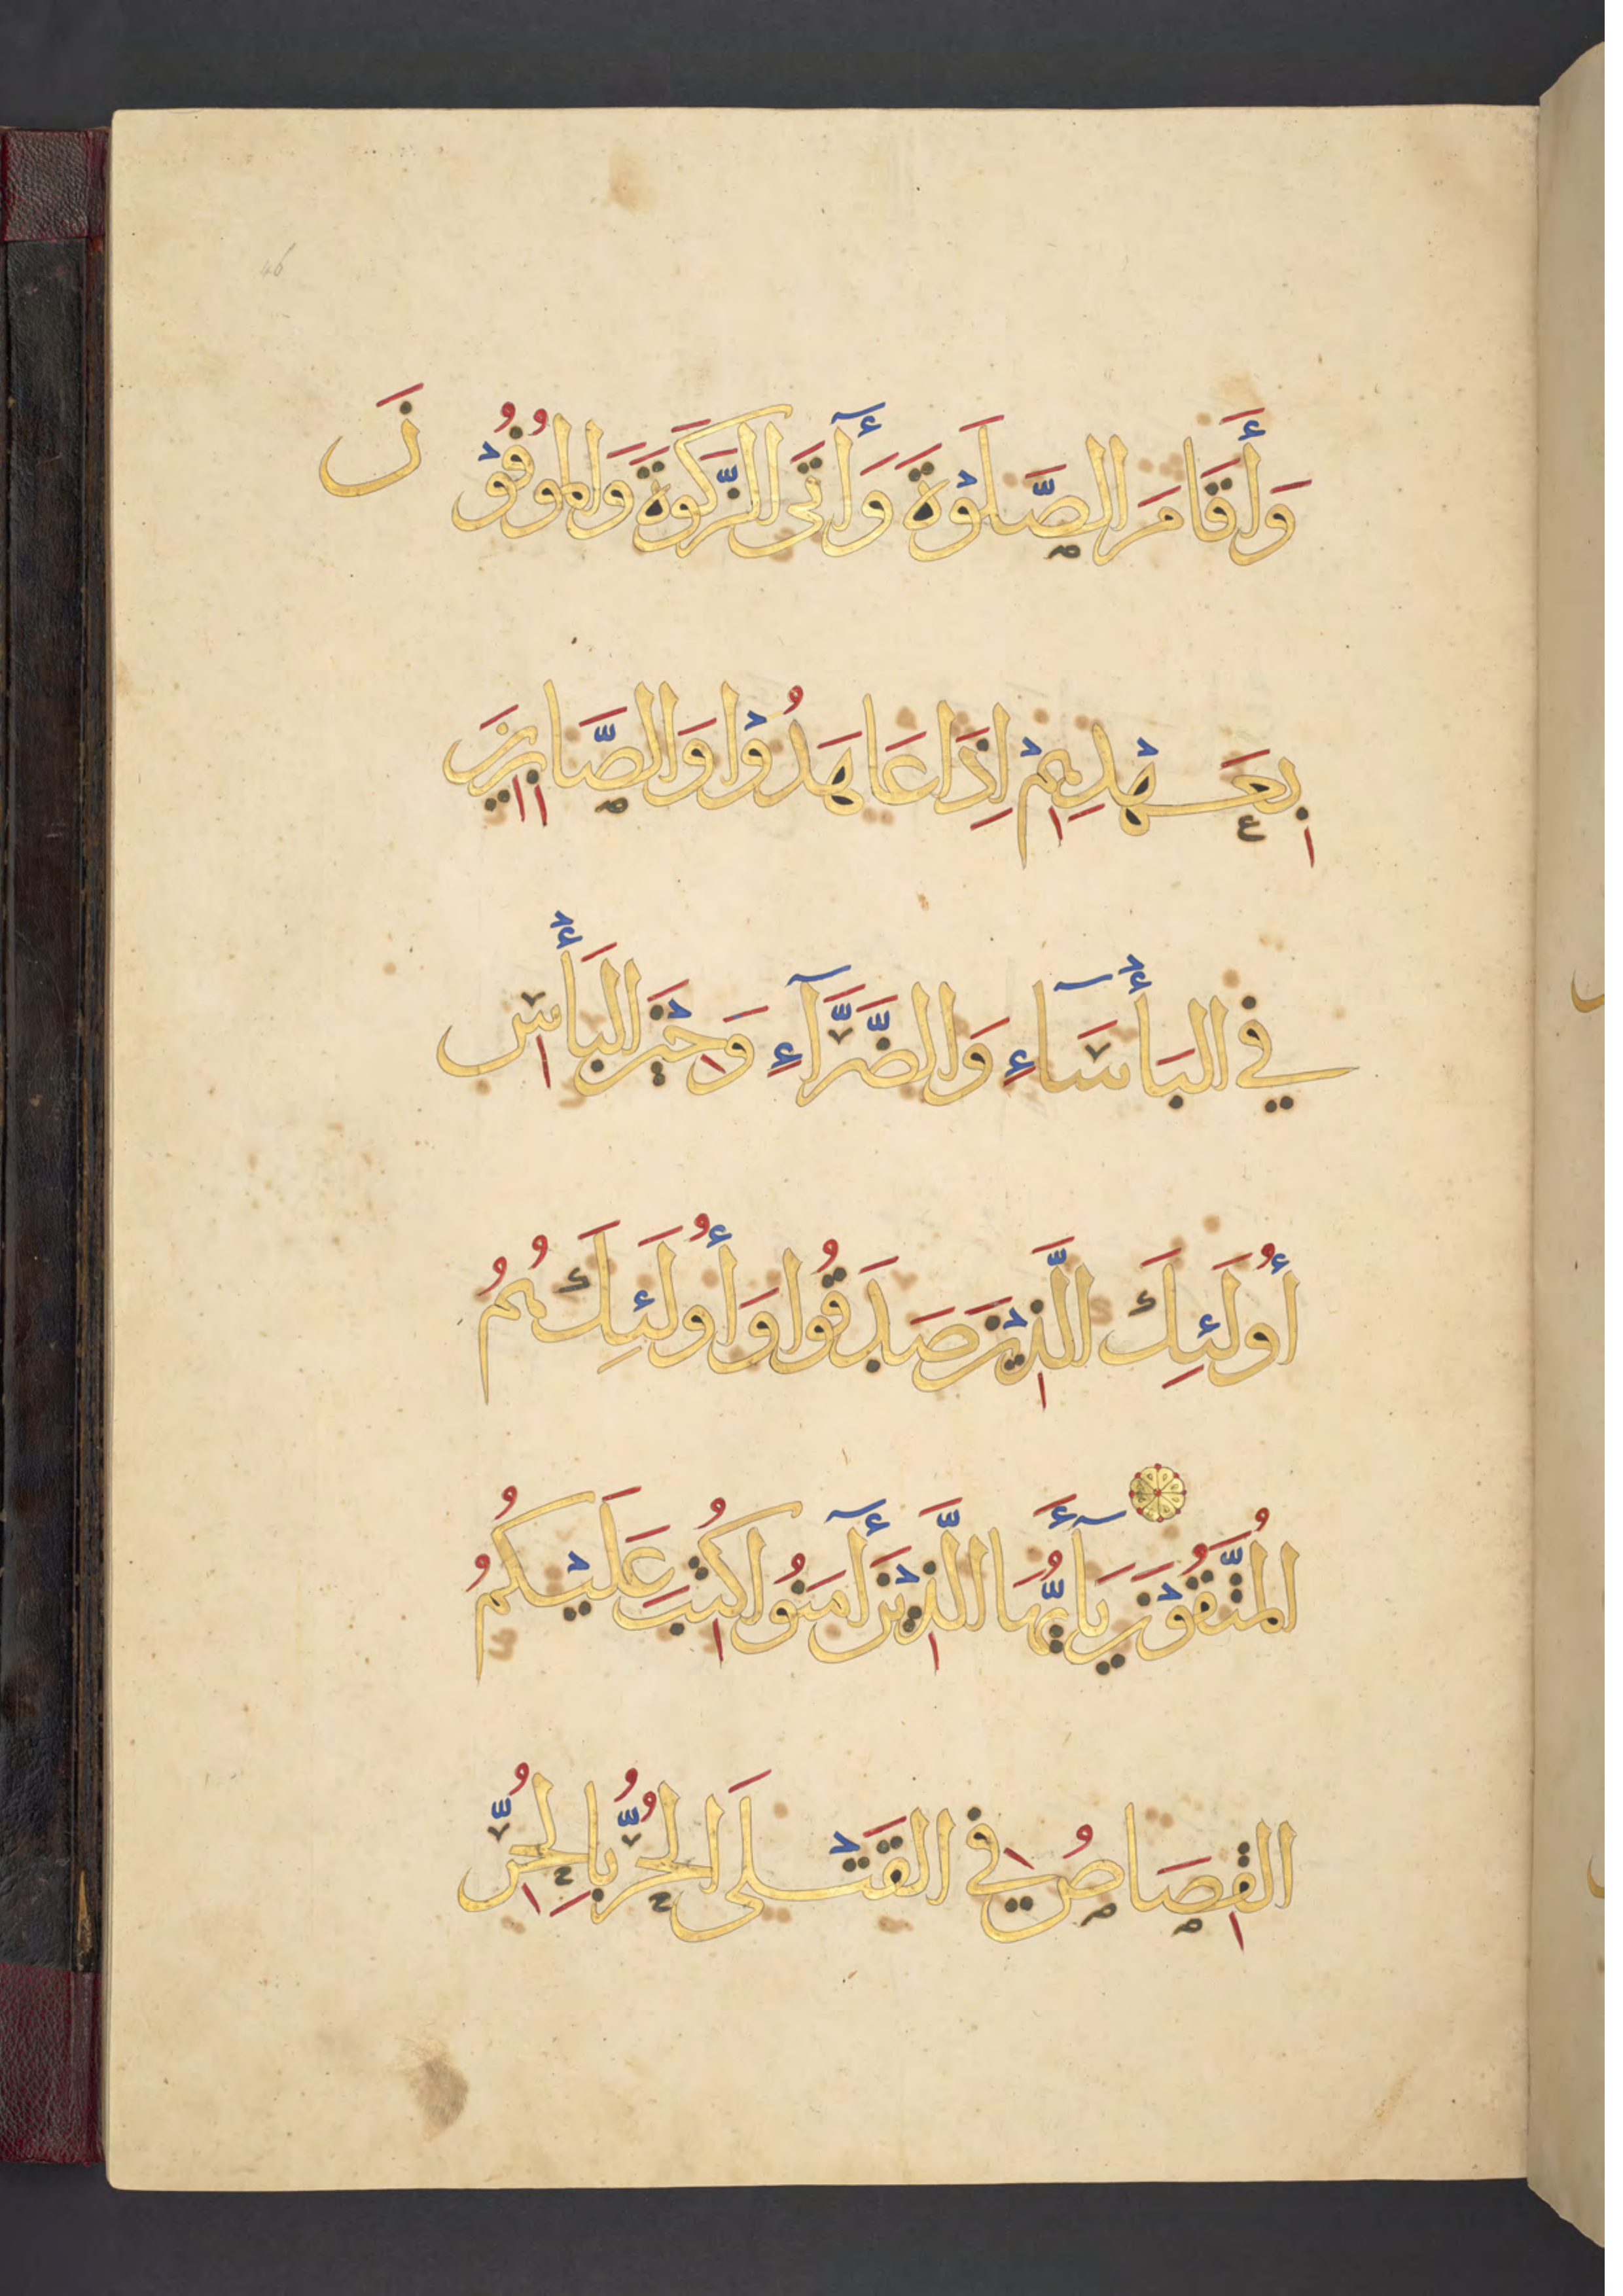 46
وَأَقَامَ الصَّلَوْةَ وَأَٓتَى الزَّكَوةَ وَالمُوفُوْنَ
بِعَهْدِهِمْ إِذَا عَاهَدُوْا وَالصَّابِرِينَ
فِي البَأْسَآءِ وَالضَّرَّآءِ وَحِيْنَ البَأْسِ
أُولَئِكَ الَّذِيْنَ صَدَقُوا وَأُولَئِكَ هُمُ
المُتَّقُوْنَ يَآأَيُّهَا الَّذِيْنَ أَٓمَنُوا كُتِبَ عَلَيْكُمُ
القِصَاصُ فِي القَتْلَى الحُرُّ بِالحُرِّ